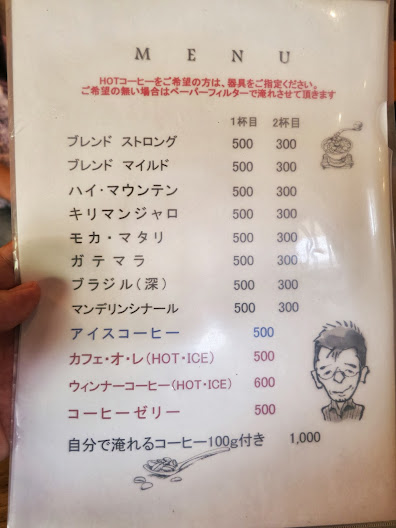 MENU
HOTコーヒーをご希望の方は、器具をご指定ください。
ご希望の無い場合はペーパーフィルターで淹れさせて頂きます
1杯目 2杯目
ブレンド ストロング 500 300
ブレンド マイルド 500 300
ハイ・マウンテン 500 300
キリマンジャロ 500 300
モカ・マタリ 500 300
ガテマラ 500 300
ブラジル(深) 500 300
マンデリンシナール 500 300
アイスコーヒー 500
カフェ・オ・レ(HOT・ICE) 500
ウィンナーコーヒー(HOT・ICE) 600
コーヒーゼリー 500
自分で淹れるコーヒー100g付き 1,000